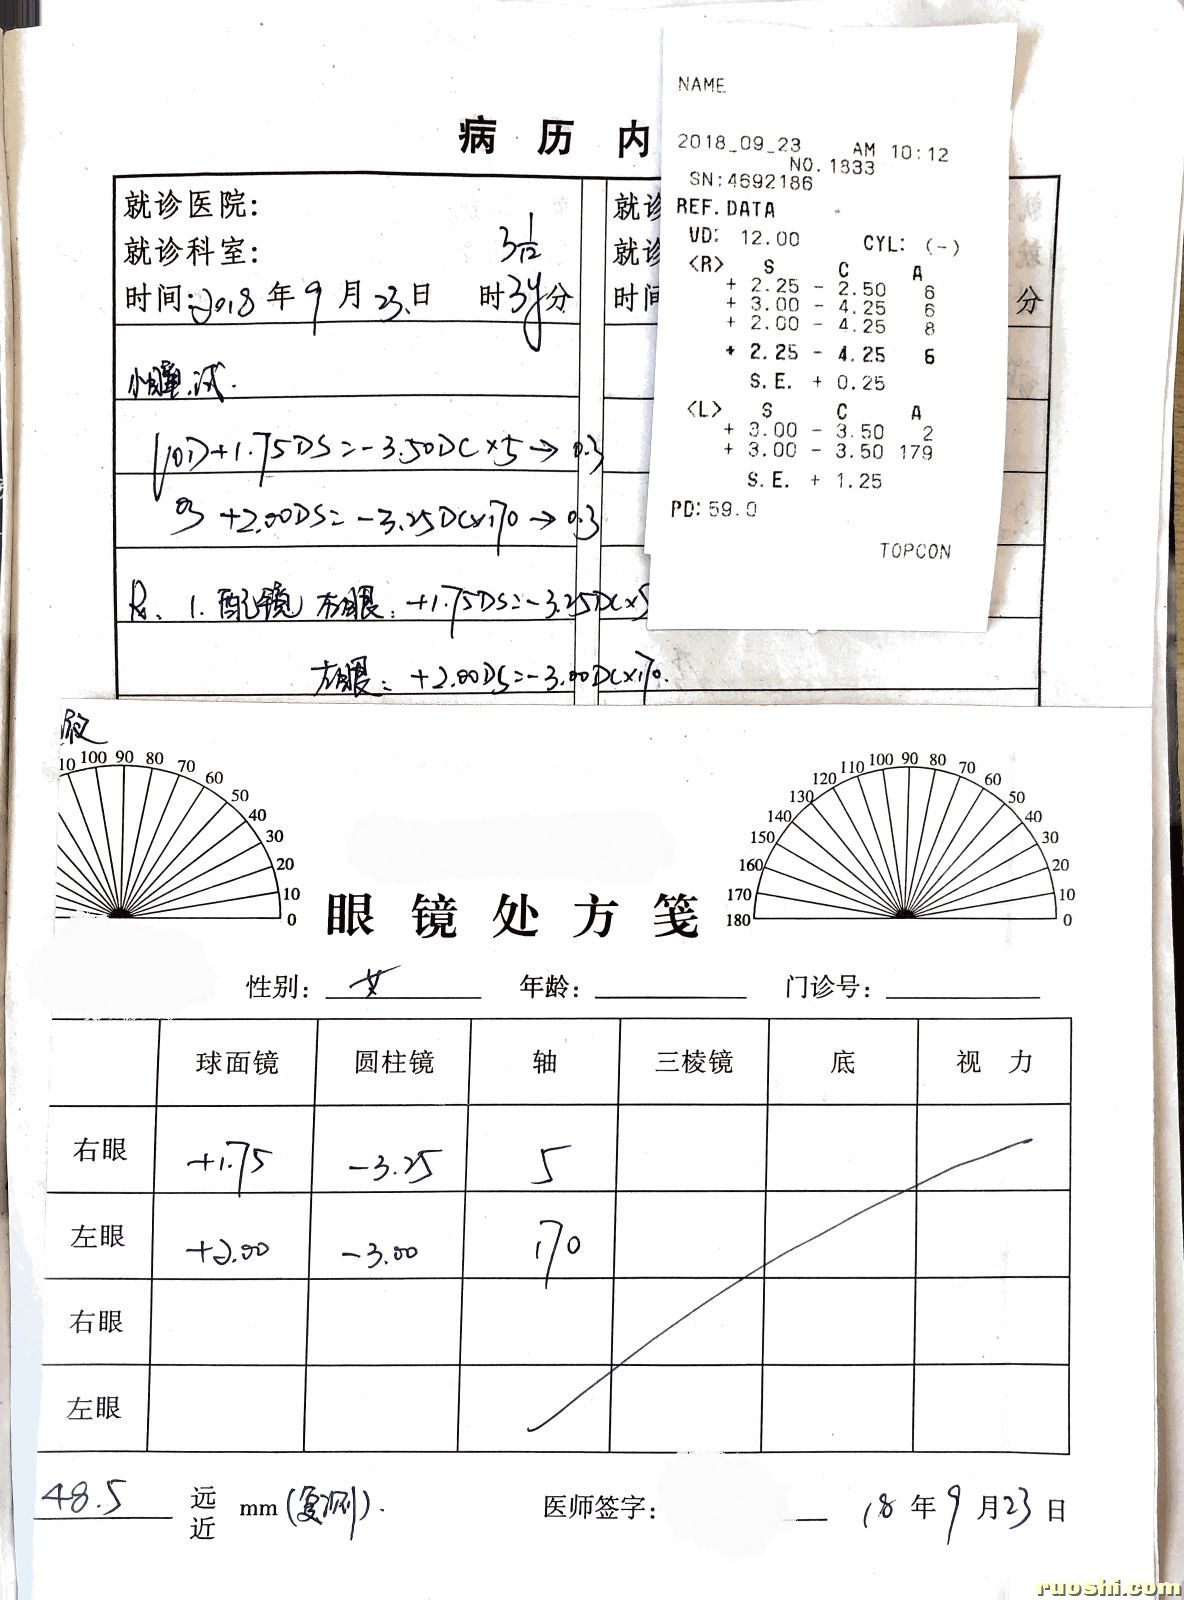 病 历 内
就诊医院:
就诊科室: 3 1/12
时间: 2018 年 9 月 23 日 时 3y 分
小瞳试.
OD+1.75DS=-3.50DC×5→0.3
OS +2.00DS=-3.25DC×170→0.3
Rx. 1. 配镜 右眼: +1.75DS=-3.25DC×5
左眼: +2.00DS=-3.00DC×170.
就诊
就诊
时间 分
NAME
2018_09_23 AM 10:12
NO.1833
SN:4692186
REF.DATA
VD: 12.00 CYL: (-)
<R> S C A
+ 2.25 - 2.50 6
+ 3.00 - 4.25 6
+ 2.00 - 4.25 8
+ 2.25 - 4.25 6
S.E. + 0.25
<L> S C A
+ 3.00 - 3.50 2
+ 3.00 - 3.50 179
S.E. + 1.25
PD: 59.0
TOPCON
10 100 90 80 70 60 50 40 30 20 10 0
180 170 160 150 140 130 120 110 100 90 80 70 60 50 40 30 20 10 0
眼 镜 处 方 笺
性别: 女 年龄: 门诊号:
球面镜 圆柱镜 轴 三棱镜 底 视 力
右眼 +1.75 -3.25 5
左眼 +2.00 -3.00 170
右眼
左眼
48.5 远 近 mm (复测). 医师签字: 18 年 9 月 23 日
ruoshi.com